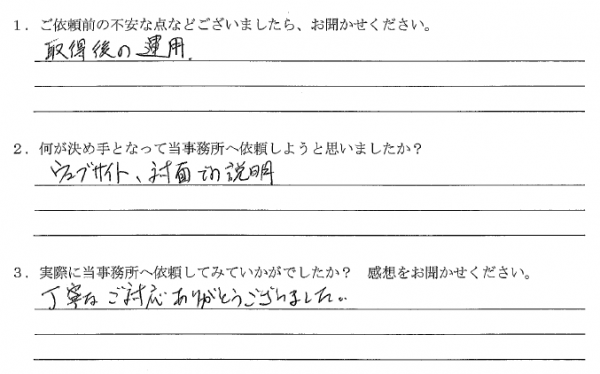 １．ご依頼前の不安な点などございましたら、お聞かせください。
取得後の運用.
２．何が決め手となって当事務所へ依頼しようと思いましたか？
ウェブサイト、対面での説明
３．実際に当事務所へ依頼してみていかがでしたか？　感想をお聞かせください。
丁寧なご対応ありがとうございました。